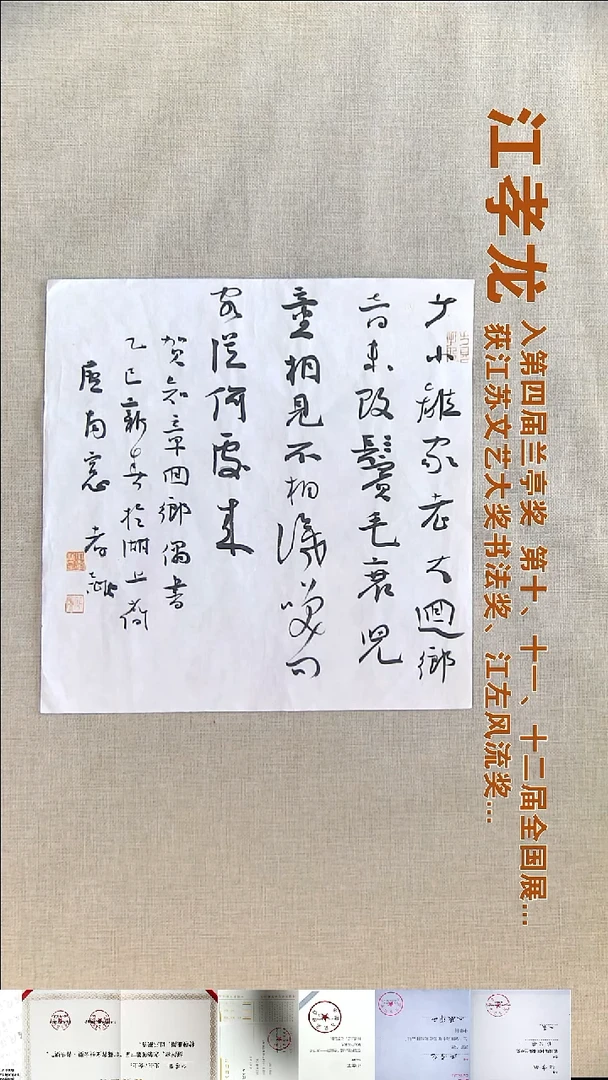 江孝龙
入第四届兰亭奖 第十、十一、十二届全国展...
获江苏文艺大奖书法奖、江左风流奖...
少小離家老大迴鄉
音未改鬢毛衰児
童相見不相識笑问
客從何處来
賀知章回鄉偶書
乙巳新春於湖上
廬南窓 孝龍